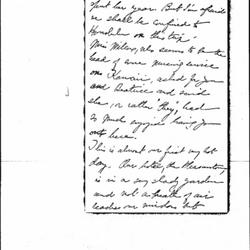 last year. But I'm afraid
we shall be confined to
Honolulu on this trip."
Mrs. Wilcox, who seems to be the
head of some nursing service
on Kauai, asked for you
and Beatrice and said
she, or rather "they", had
so much enjoyed having you
over here.
This is almost our first very hot
day. Our hotel, the Pleasanton,
is in a very shady garden
and not a breath of air
reaches our window but